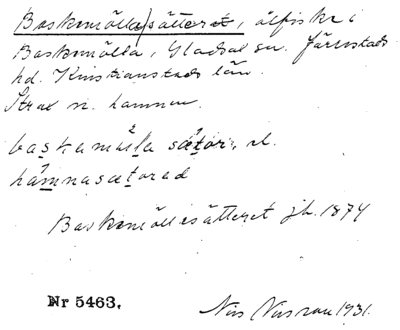 Baskemölla/sätteret, ålfiske i
Baskemölla, Gladsax sn. Järrestads
hd. Kristianstads län.
Strax n. hamnen.
baskamöla sætör, el.
hámnasætored
Baskemöllesätteret jb. 1874
Nr 5463. Nils Nilsson 1931.